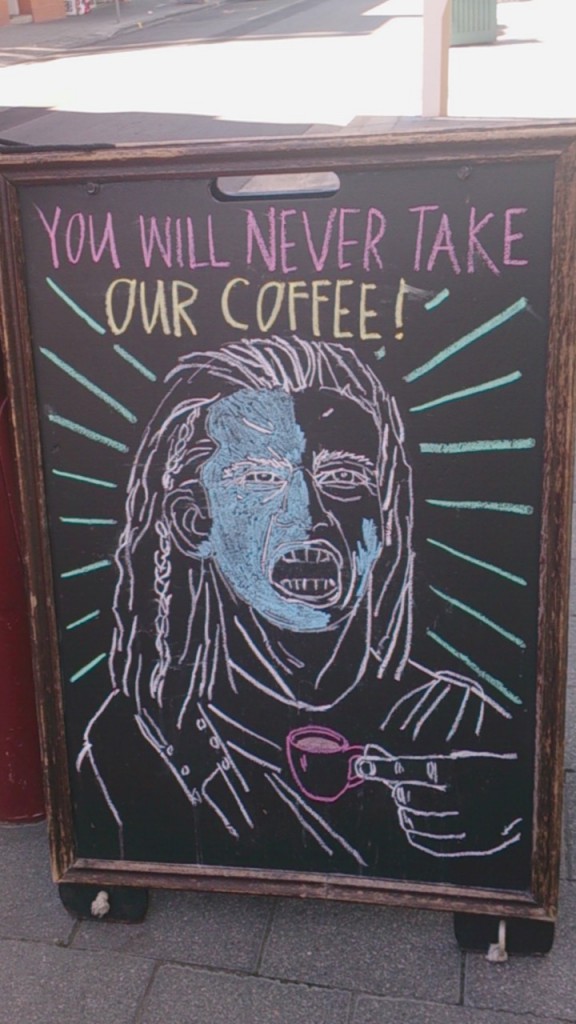 YOU WILL NEVER TAKE
OUR COFFEE!